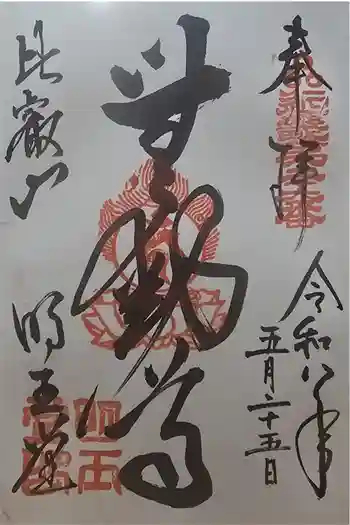 奉拝
令和八年
五月二十五日
無動尊
比叡山
明王堂